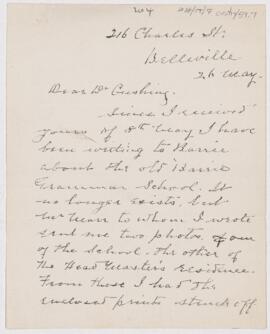 216 Charles St:
Belleville
26 May.
Dear Dr Cushing,
Since I received
yours of 8th May I have
been writing to Barrie
about the old Barrie
Grammar School. It
no longer exists, but
the man to whom I wrote
sent me two photos, one
of the School, the other of
the Head Master's Residence.
From these I had the
enclosed prints struck off